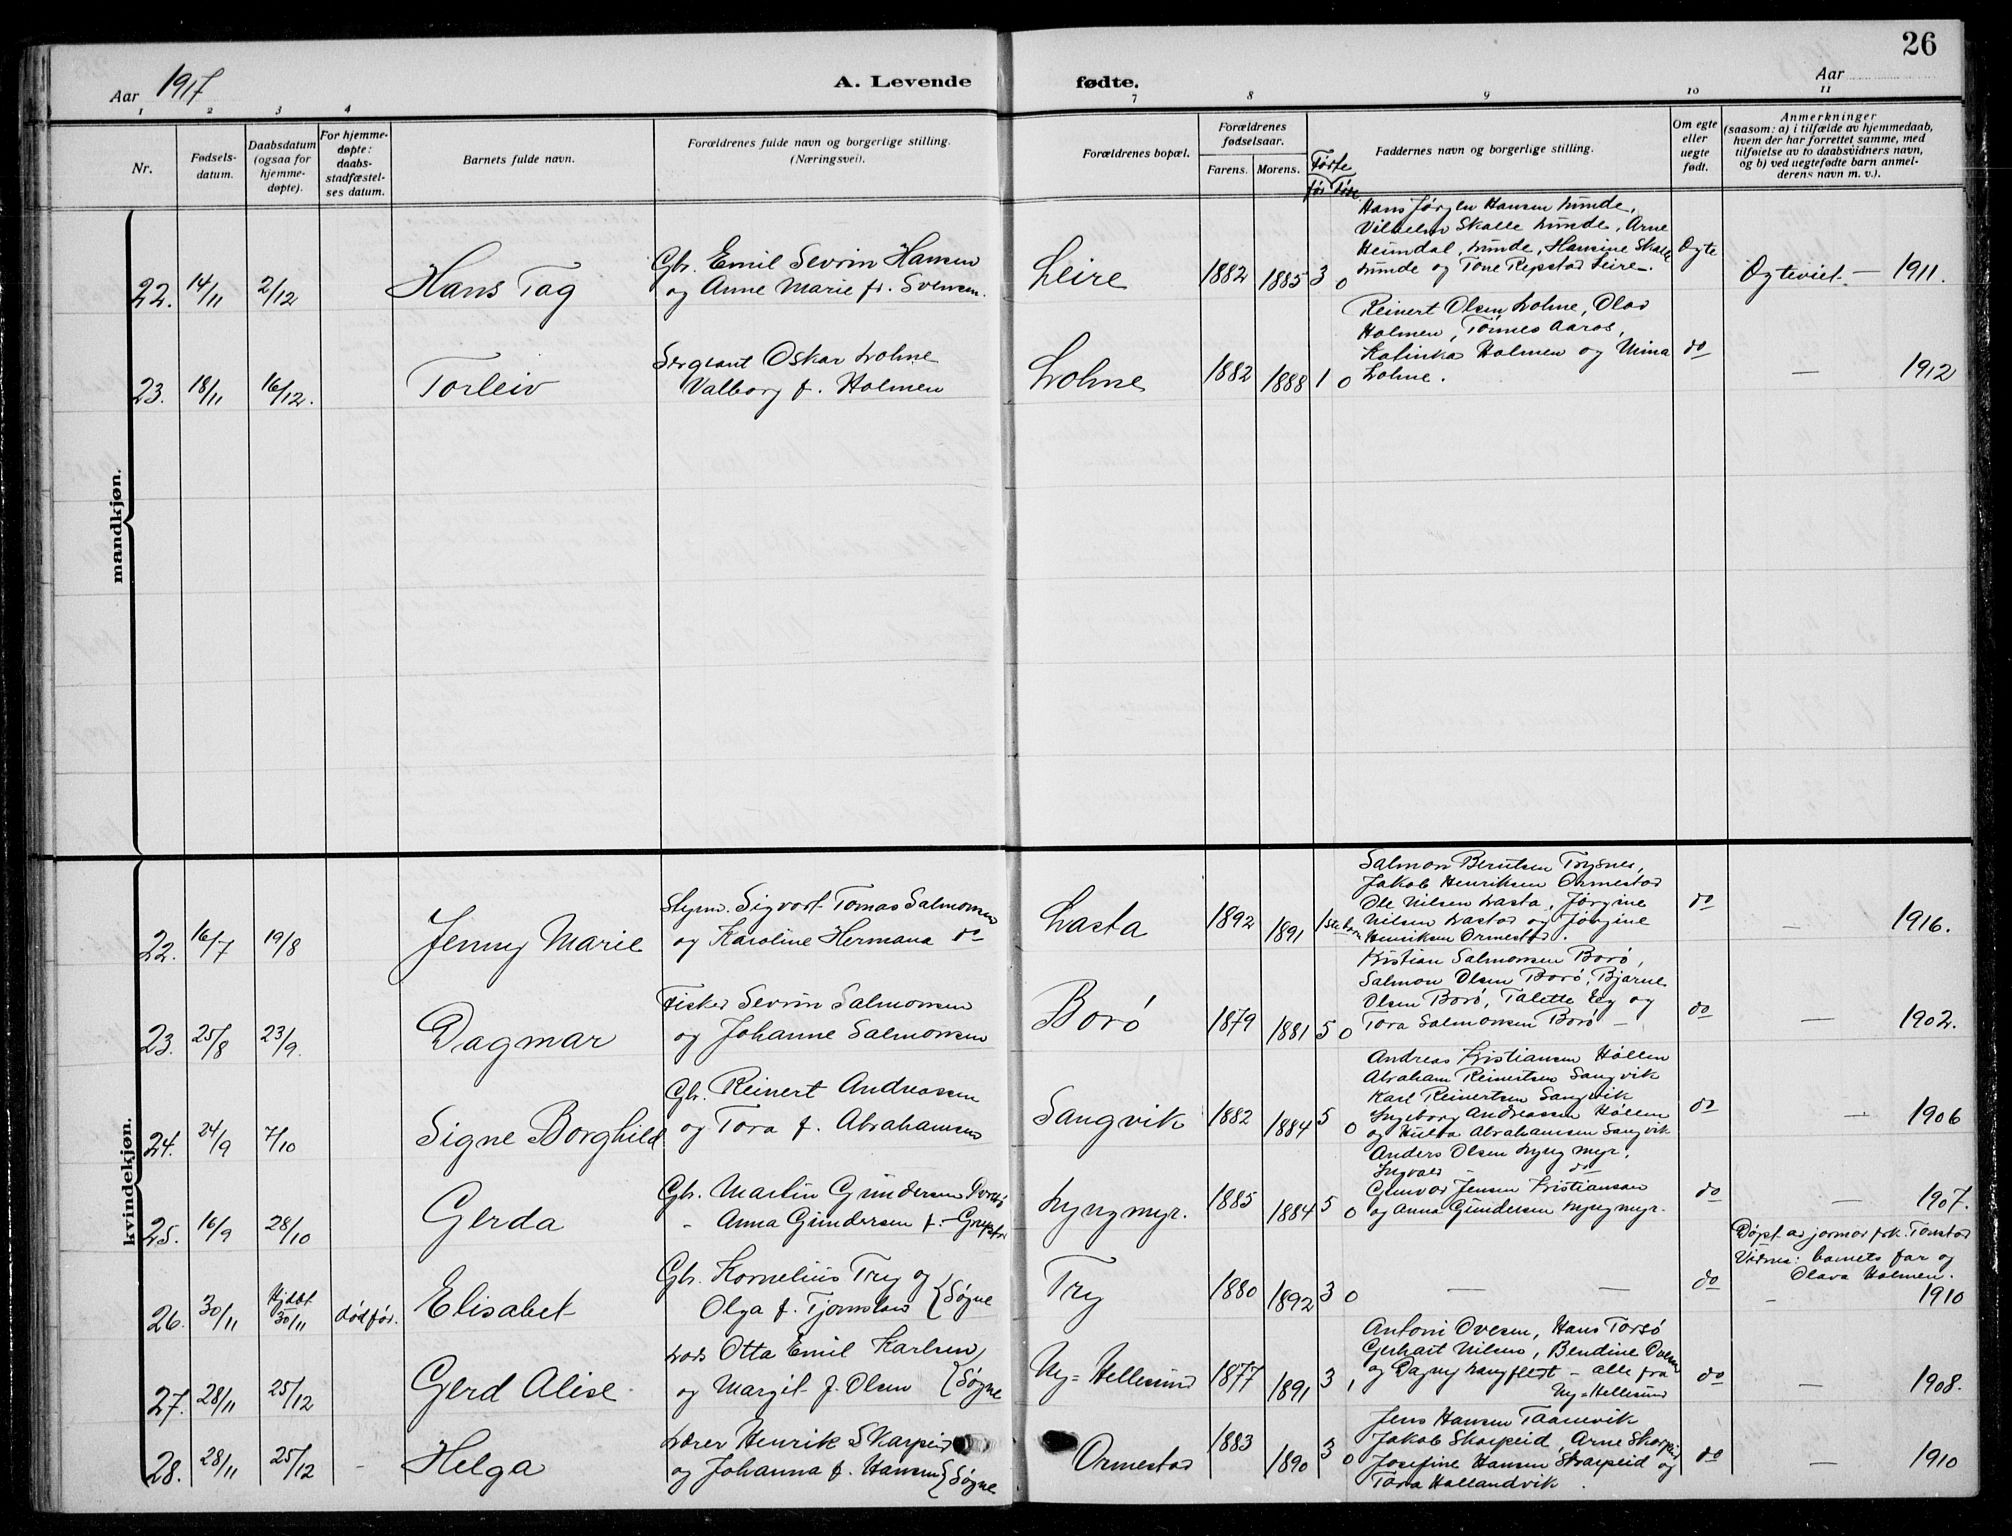 26
Aar 1917
A. Levende
fødte.
Aar
1 2 3 4 7 8 9 10 11
Nr.
Fødsels-
datum.
Daabsdatum
(ogsaa for
hjemme-
døpte).
For hjemme-
døpte:
daabs-
stadfæstel-
ses datum.
Barnets fulde navn.
Forældrenes fulde navn og borgerlige stilling.
(Næringsvei).
Forældrenes bopæl.
Forældrenes
fødselsaar.
Farens. Morens.
Faddernes navn og borgerlige stilling.
Om egte
eller
uegte
født.
Anmerkninger
(saasom: a) i tilfælde av hjemmedaab,
hvem der har forrettet samme, med
tilføielse av to daabsvidners navn,
og b) ved uegtefødte barn anmel-
derens navn m. v.).
mandkjøn.
22. 14/11 2/12 Hans Tag
Gbr. Emil Sevrin Hansen
og Anne Marie f. Svensen.
Leire 1882 1885 3 0
Hans Jørgen Hansen Lunde,
Vilhelm Skalle Lunde, Arne
Heimdal, Lunde, Hansine Skalle
Lunde og Tone Repstad Leire.
Egte
Egteviet. — 1911.
23. 18/11 16/12. Torleiv
Sergeant Oskar Lohne
Valborg f. Holmen
Lohne 1882 1888 1 0
Reinert Olsen Lohne, Olav
Holmen, Tønnes Aaros,
Kalinka Holmen og Mina
Lohne.
do — 1912
kvindekjøn.
22. 16/7 19/8 Jenny Marie
Styrm. Sigvart Tomas Salmonsen
og Karoline Hermana do
Lasta 1892 1891
Salmon Berntsen Trysnes,
Jakob Henriksen Ormestad
Ole Nilsen Lasta, Jørgine
Nilsen Lastad og Jørgine
Henriksen Ormestad.
do — 1916.
23. 25/8 23/9. Dagmar
Fisker Sevrin Salmonsen
og Johanne Salmonsen
Borø 1879 1881 5 0
Kristian Salmonsen Borø,
Salmon Olsen Borø, Bjarne
Olsen Borø, Talette Eeg og
Tora Salmonsen Borø —
do — 1902.
24. 24/9 7/10 Signe Borghild
Gbr. Reinert Andreassen
og Tora f. Abrahamsen
Sangvik 1882 1884 5 0
Andreas Kristiansen Høllen
Abraham Reinertsen Sangvik
Karl Reinertsen Sangvik
Ingeborg Andreassen Høllen
og Hulda Abrahamsen Sangvik
do — 1906
25. 16/9 28/10 Gerda
Gbr. Martin Gundersen
- Anna Gundersen f.
Lyngmyr. 1885 1884 5 0
Anders Olsen Lyngmyr,
Ingvald - do
Gunvor Jensen Kristiansand
og Anna Gundersen Lyngmyr.
do — 1907.
26. 30/11 Hjdbt 30/11 død før. Elisabet
Gbr. Kornelius Try og
Olga f. Tjomsland { Søgne
Try 1880 1892 3 0
— — do
Døpt av jormor frk. Tonstad
Vidnei: barnets far og
Olava Holmen.
- 1910
27. 28/11 25/12 Gerd Alise
Lods Otto Emil Karlsen
og Margit f. Olsen { Søgne
Ny-Hellesund 1877 1891 3 1
Antoni Ovesen, Hans Torsø
Gerhart Nilsen, Bendine Ovesen
og Dagny Langflest - alle fra
Ny-Hellesund
do — 1908.
28. 28/11 25/12 - Helga
Lærer Henrik Skarpeid
og Johanna f. Hansen { Søgne
Ormestad 1883 1890 3 0
Jens Hansen Taanevik
Jakob Skarpeid, Arne Skarpeid
Josefine Hansen Skarpeid og
Tora Hallandvik.
do — 1910